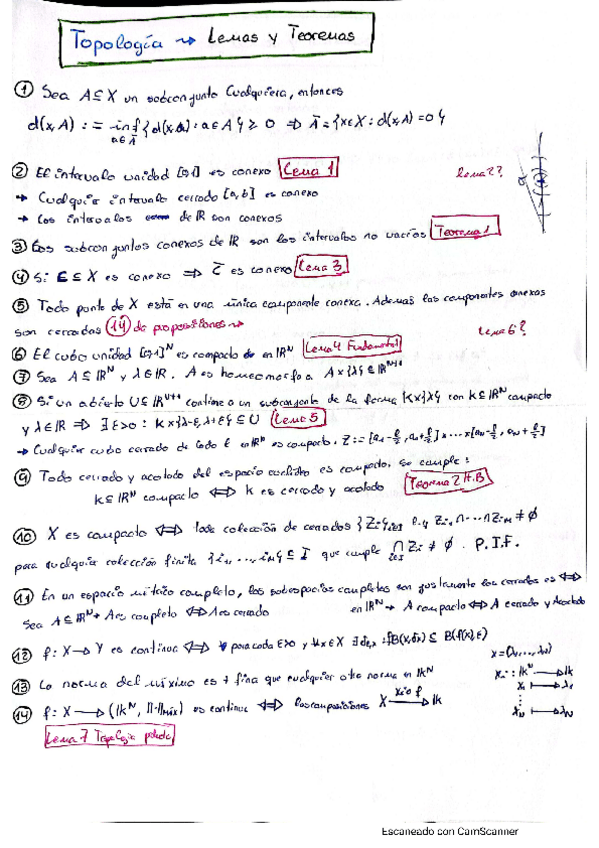 Topología → Lemas y Teoremas
① Sea A⊆X un subconjunto cualquiera, entonces
d(x,A) := inf {d(x,a) : a∈A} ≥ 0 ⇒ Ā = {x∈X : d(x,A)=0}
a∈A
② El intervalo unidad [0,1] es conexo Lema 1
lema 2?
→ Cualquier intervalo cerrado [a,b] es conexo
→ Los intervalos de IR son conexos
③ Los subconjuntos conexos de IR son los intervalos no vacíos Teorema 1
④ Si C ⊆ X es conexo ⇒ C̄ es conexo Lema 3
⑤ Todo punto de X está en una única componente conexa. Además las componentes conexas
son cerradas ⑭ de proposiciones →
Lema 6?
⑥ El cubo unidad [0,1]ᴺ es compacto de en IRᴺ Lema 4 Fundamental
⑦ Sea A ⊆ IRᴺ y λ∈IR. A es homeomorfo a A×{λ} ⊆ IRᴺ⁺¹
⑧ Si un abierto U⊆IRᴺ⁺¹ contiene a un subconjunto de la forma K×{λ} con K⊆IRᴺ compacto
y λ∈IR ⇒ ∃ ε>0 : K×[λ-ε, λ+ε] ⊆ U Lema 5
→ Cualquier cubo cerrado de lado ℓ en IRᴺ es compacto. Z := [a₁-ℓ/2, a₁+ℓ/2]×...×[aN-ℓ/2, aN+ℓ/2]
⑨ Todo cerrado y acotado del espacio euclídeo es compacto. Se cumple:
K⊆IRᴺ compacto ⇔ K es cerrado y acotado Teorema 2 H.B
⑩ X es compacto ⇔ toda colección de cerrados {Zi}i∈I t.q Zi₁∩...∩Ziₙ ≠ ∅
para cualquier colección finita {i₁,...,iₙ} ⊆ I que cumple ∩ Zi ≠ ∅. P.I.F.
i∈I
⑪ En un espacio métrico completo, los subespacios completos son justamente los cerrados es ⇔
Sea A⊆IRᴺ → A es completo ⇔ A es cerrado en IRᴺ → A compacto ⇔ A cerrado y Acotado
⑫ f: X → Y es continua ⇔ para cada ε>0 y x∈X
⑬ La norma del máximo es + fina que cualquier otra norma en IKᴺ
⑭ f: X → (IKᴺ, ||·||máx) es continua ⇔ las composiciones X → IK
xi∘f
x=(λ₁,...,λN)
xi : IKᴺ → IK
x₁ ↦ λ₁
⋮
xN ↦ λN
Lema 7 Topología
Escaneado con CamScanner